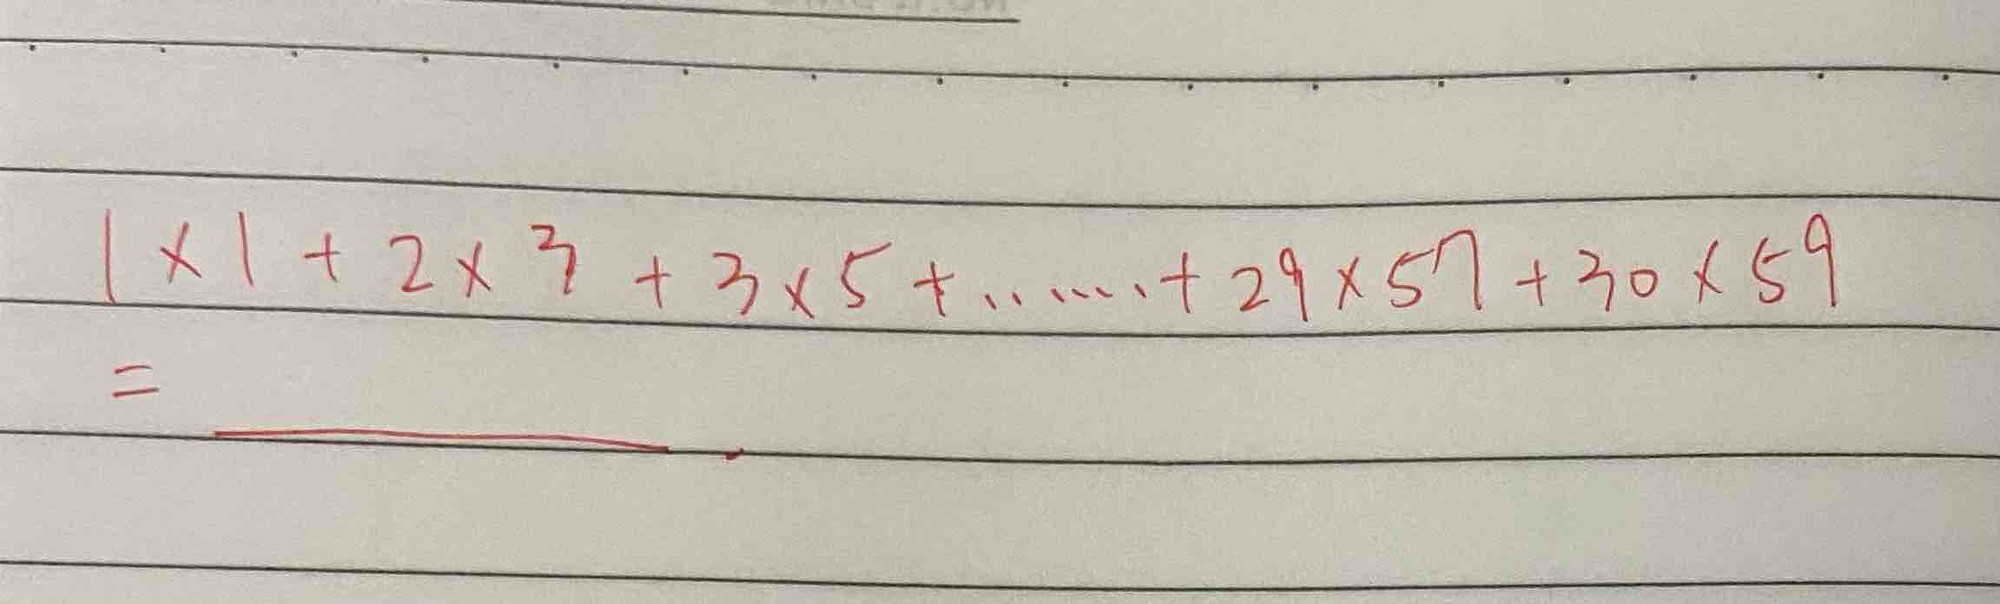 1×1+2×3+3×5+......+29×57+30×59
= ______.